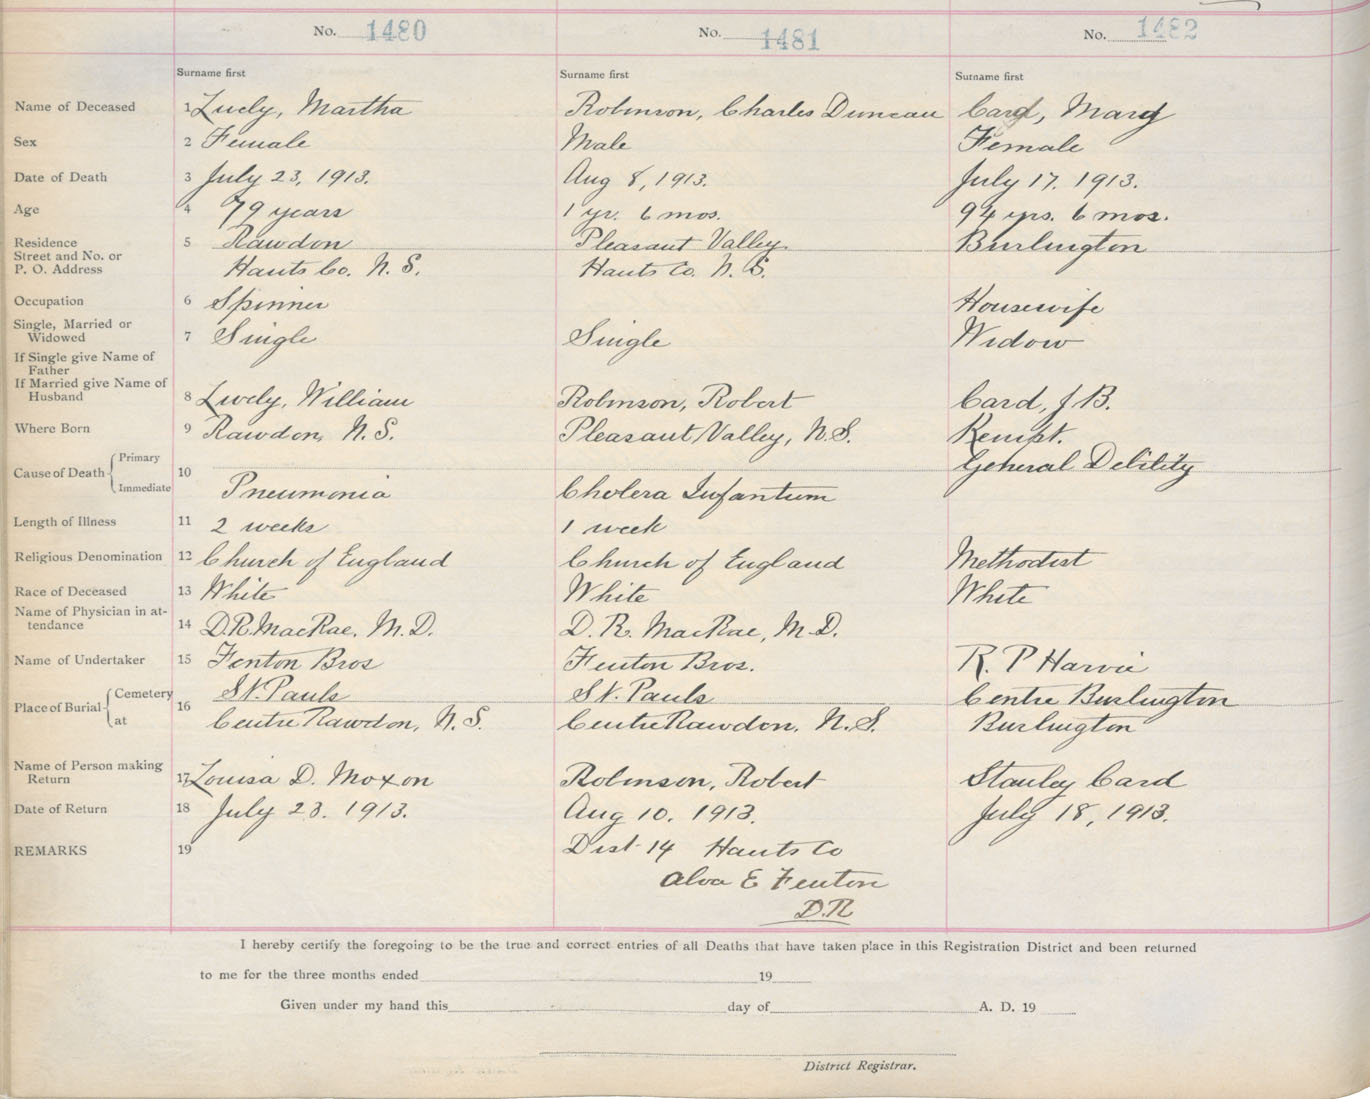 No. 1480 No. 1481 No. 1482
Surname first Surname first Surname first
Name of Deceased 1 Lively, Martha Robinson, Charles Duncan Card, Mary
Sex 2 Female Male Female
Date of Death 3 July 23, 1913. Aug 8, 1913. July 17. 1913.
Age 4 79 years 1 yr. 6 mos. 94 yrs. 6 mos.
Residence 5 Rawdon Pleasant Valley Burlington
Street and No. or
P. O. Address Hants Co. N. S. Hants Co. N. S.
Occupation 6 Spinner Housewife
Single, Married or
Widowed 7 Single Single Widow
If Single give Name of
Father
If Married give Name of
Husband 8 Lively, William Robinson, Robert Card, J B.
Where Born 9 Rawdon, N. S. Pleasant Valley, N. S. Kempt.
Cause of Death Primary 10 General Debility
Immediate Pneumonia Cholera Infantum
Length of Illness 11 2 weeks 1 week
Religious Denomination 12 Church of England Church of England Methodist
Race of Deceased 13 White White White
Name of Physician in at-
tendance 14 D.R. MacRae, M. D. D. R. MacRae, M. D.
Name of Undertaker 15 Fenton Bros Fenton Bros. R. P Harvie
Place of Burial Cemetery 16 St. Pauls St. Pauls Centre Burlington
at Centre Rawdon, N. S. Centre Rawdon, N. S. Burlington
Name of Person making
Return 17 Louisa D. Moxon Robinson, Robert Stanley Card
Date of Return 18 July 23. 1913. Aug 10. 1913. July 18, 1913.
REMARKS 19 Dist 14 Hants Co
Alva E Fenton
D.R
I hereby certify the foregoing to be the true and correct entries of all Deaths that have taken place in this Registration District and been returned
to me for the three months ended 19
Given under my hand this day of A. D. 19
District Registrar.